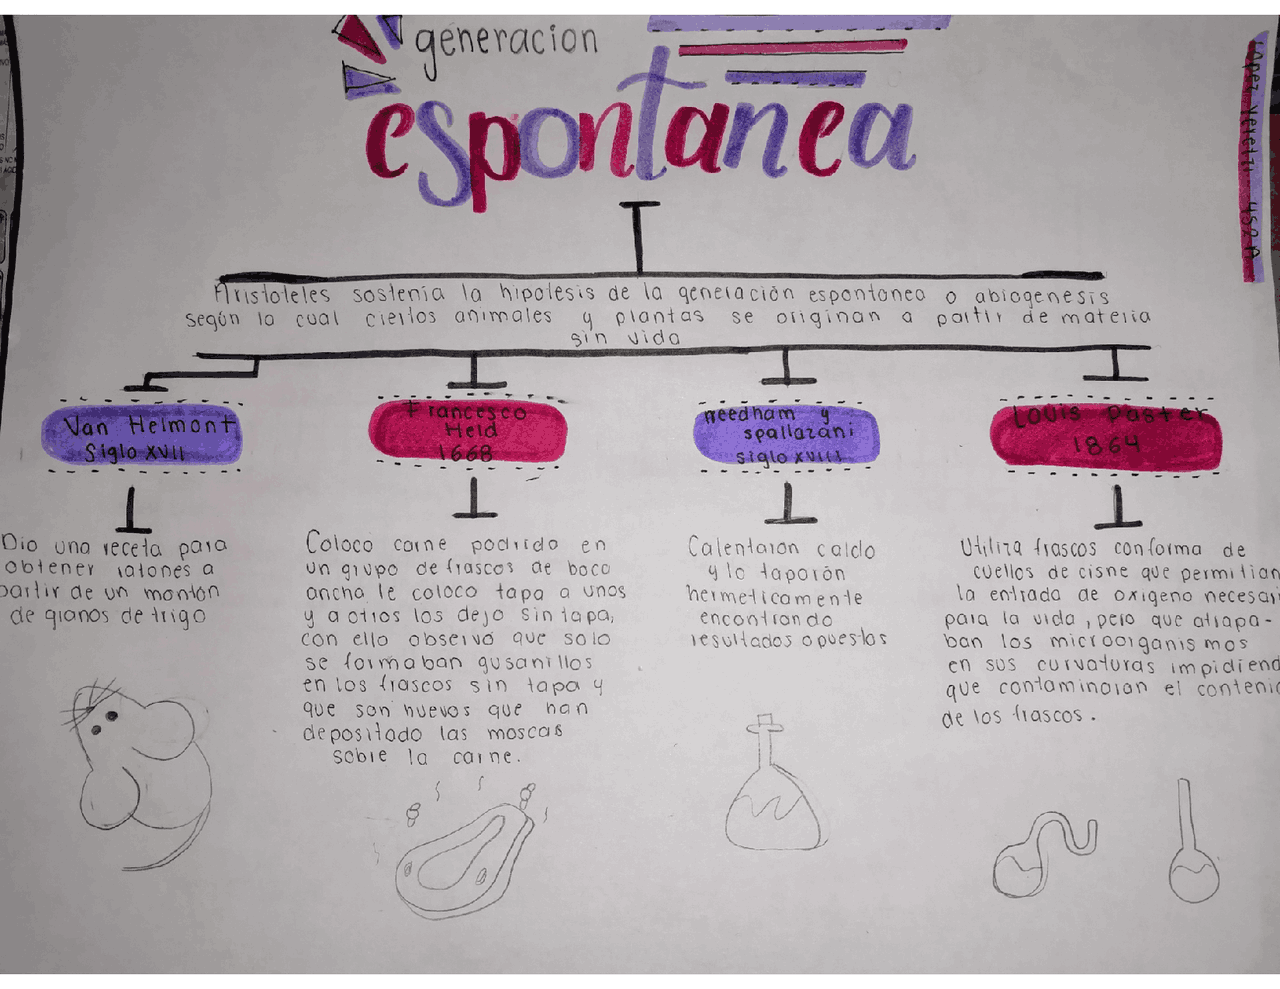 generacion
espontanea
Aristoteles sostenia la hipotesis de la generación espontanea o abiogenesis
según la cual ciertos animales y plantas se originan a partir de materia
sin vida
Van Helmont
Siglo XVII
Dio una receta para
obtener ratones a
partir de un montón
de granos de trigo
Francesco
Heid
1668
Coloco carne podrida en
un grupo de frascos de boca
ancha le coloco tapa a unos
y a otros los dejo sin tapa,
con ello observó que solo
se formaban gusanillos
en los frascos sin tapa y
que son huevos que han
depositado las moscas
sobre la carne.
needham y
spallazani
siglo XVIII
Calentaron caldo
y lo taparón
hermeticamente
encontrando
resultados opuestos
Louis Paster
1864
Utiliza frascos con forma de
cuellos de cisne que permitian
la entrada de oxigeno necesari
para la vida, pero que atrapa-
ban los microorganismos
en sus curvaturas impidiend
que contaminaran el contenid
de los frascos.